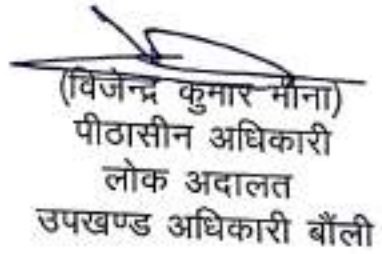 (विजेन्द्र कुमार मीना)
पीठासीन अधिकारी
लोक अदालत
उपखण्ड अधिकारी बौंली